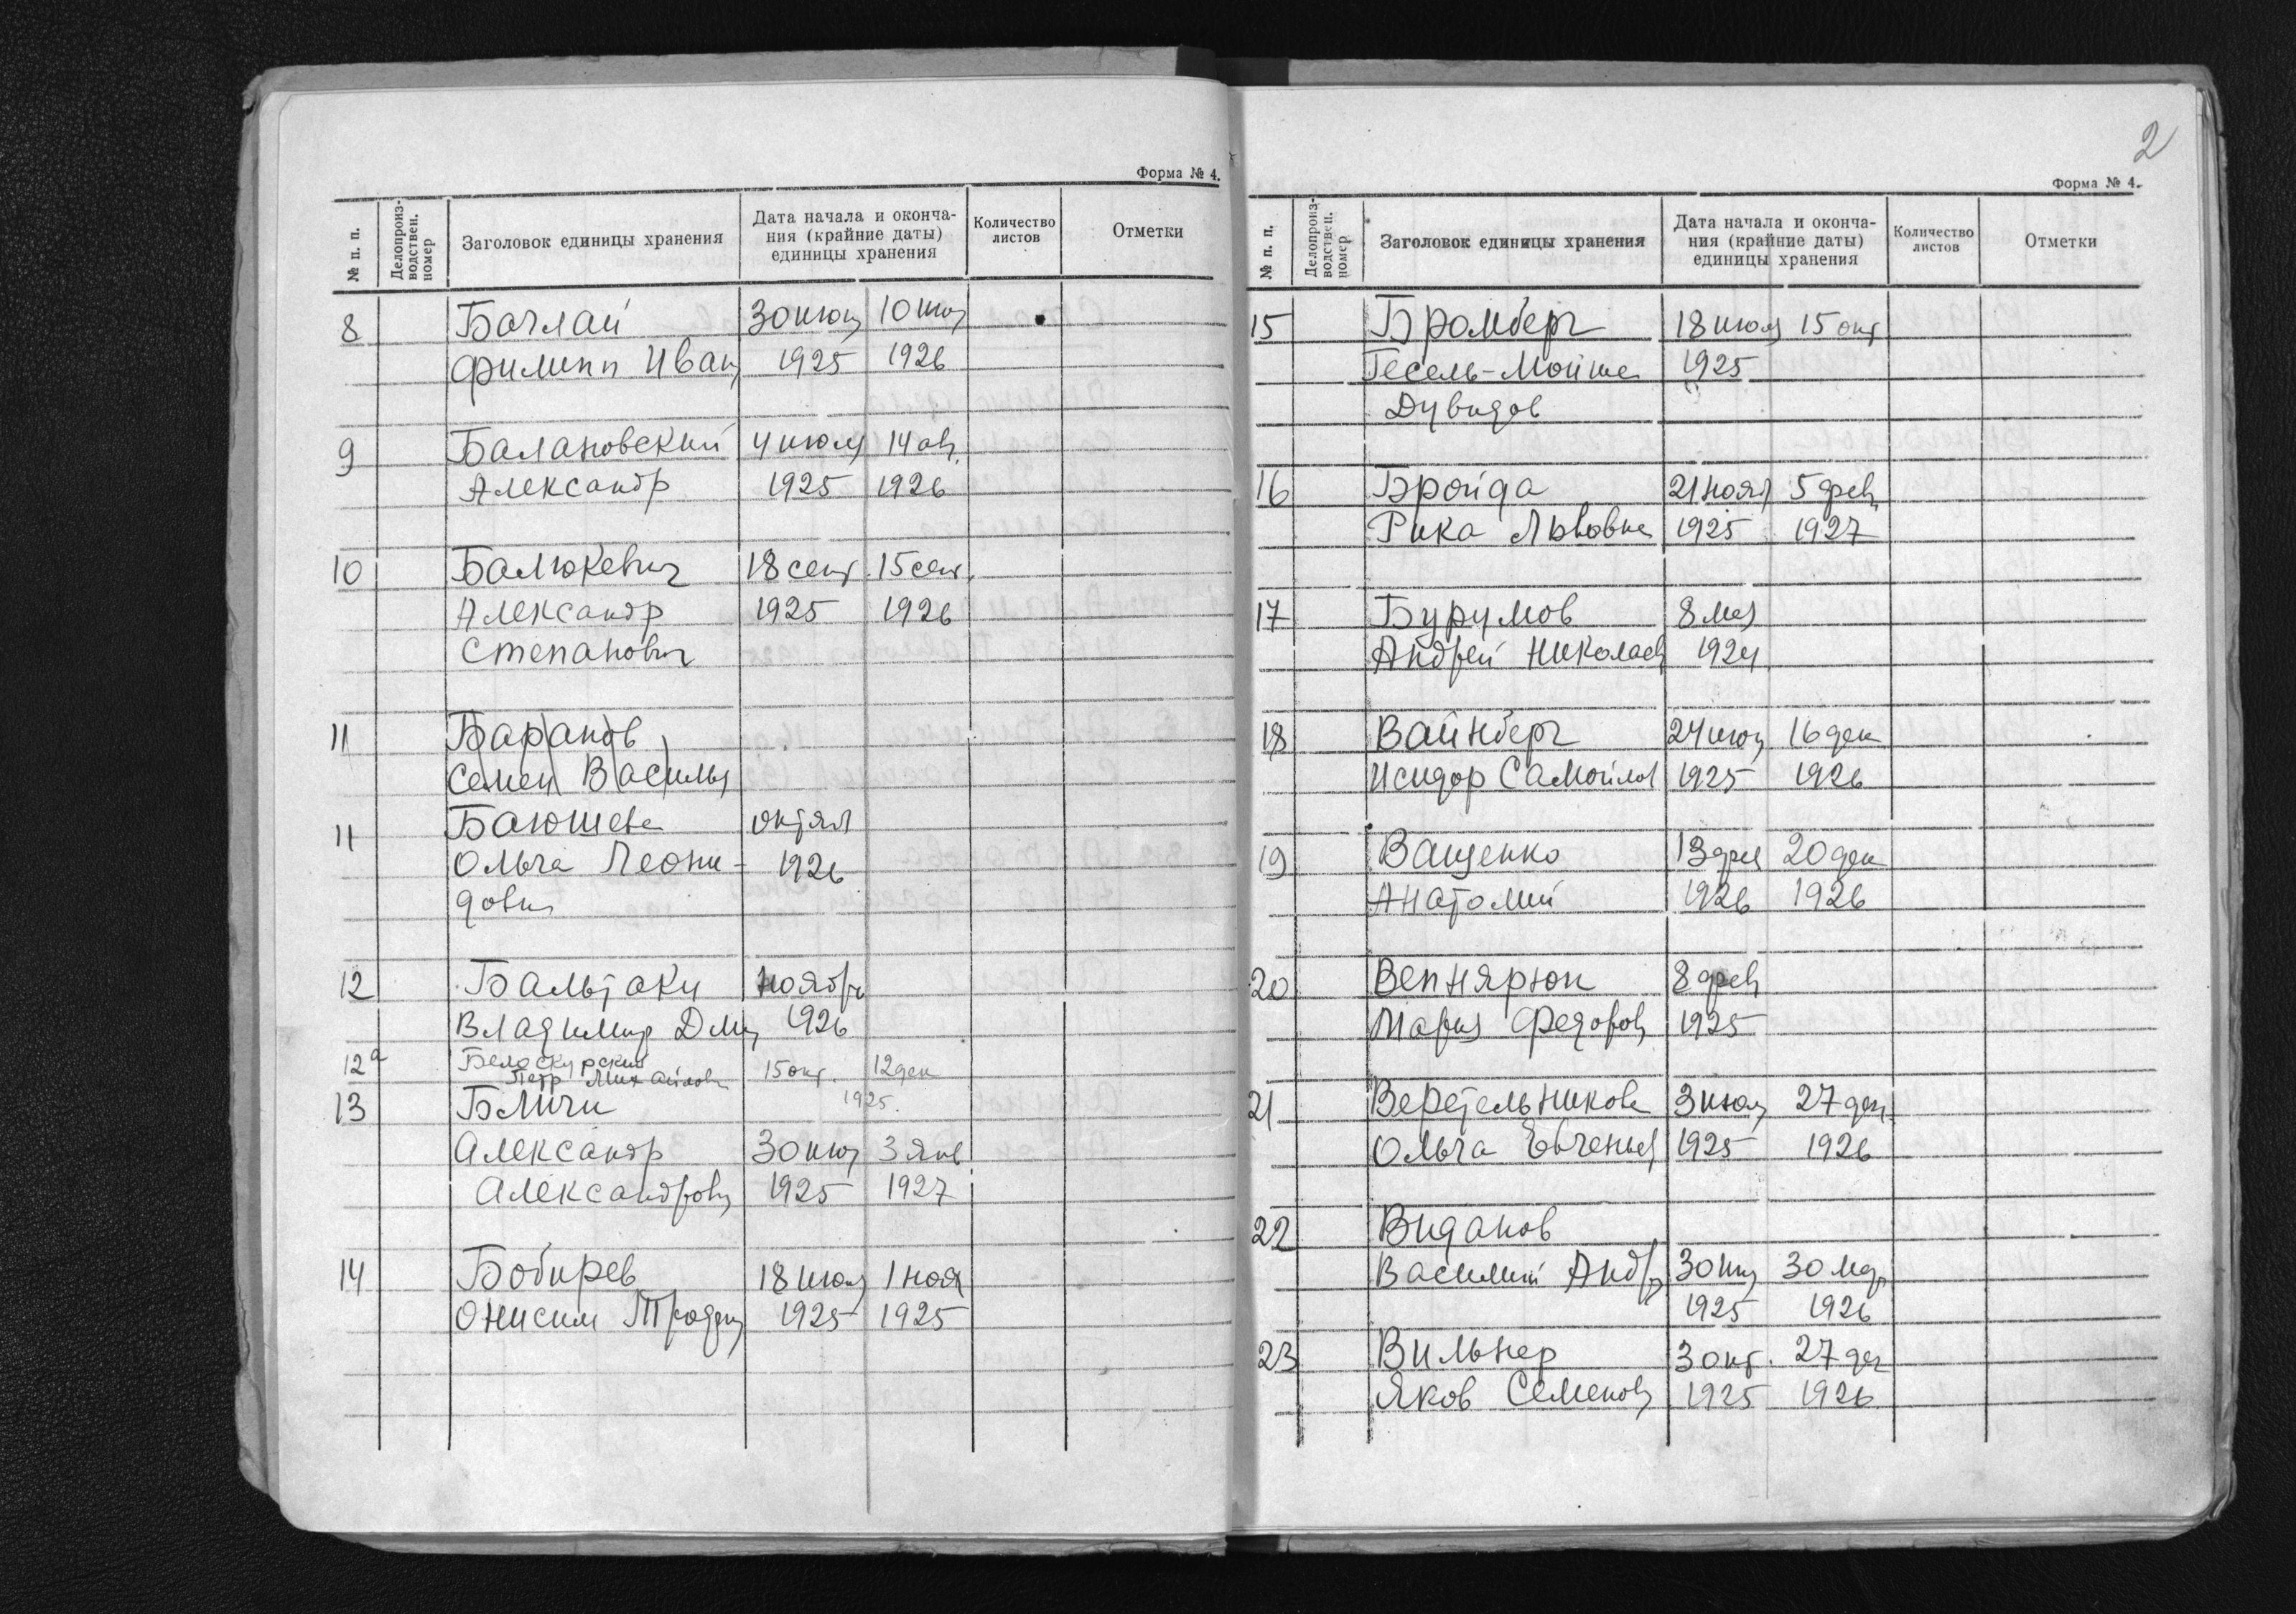 Форма № 4.
№ п. п.
Делопроиз-
водствен.
номер
Заголовок единицы хранения
Дата начала и оконча-
ния (крайние даты)
единицы хранения
Количество
листов
Отметки
8 Баглай 30 июн 10 июн
Филипп Иван 1925 1926
9 Балановский 4 июля 14 ав.
Александр 1925 1926
10 Балюкевич 18 сент. 15 сент.
Александр 1925 1926
Степанович
11 Баранов
Семен Василь
11 Баюшева октяб
Ольга Леони- 1926
довн
12 Бальтаки Ноябрь
Владимир Дми 1926
12а Белоскурский 15 окт. 12 дек
Петр Михайлович 1925.
13 Блиги
Александр 30 июн 3 янв
Александрович 1925 1927
14 Бобирев 18 июн 1 ноя
Онисим Трофим 1925 1925
2
Форма № 4.
№ п. п.
Делопроиз-
водствен.
номер
Заголовок единицы хранения
Дата начала и оконча-
ния (крайние даты)
единицы хранения
Количество
листов
Отметки
15 Бромберг 18 июля 15 окт
Гесель-Мойше 1925
Дувидов
16 Бройда 21 нояб 5 фев
Рика Львовна 1925 1927
17 Бурумов 8 мая
Андрей Николаев 1924
18 Вайнберг 24 июн 16 дек
Исидор Самойлов 1925 1926
19 Ващенко 13 фев 20 дек
Анатолий 1926 1926
20 Вепнярюк 8 фев
Мария Федоров 1925
21 Веретельникова 3 июл 27 дек.
Ольга Евгенье 1925 1926
22 Виданов
Василий Андр 30 июн 30 мар
1925 1926
23 Вильнер 3 окт. 27 дек
Яков Семенов 1925 1926